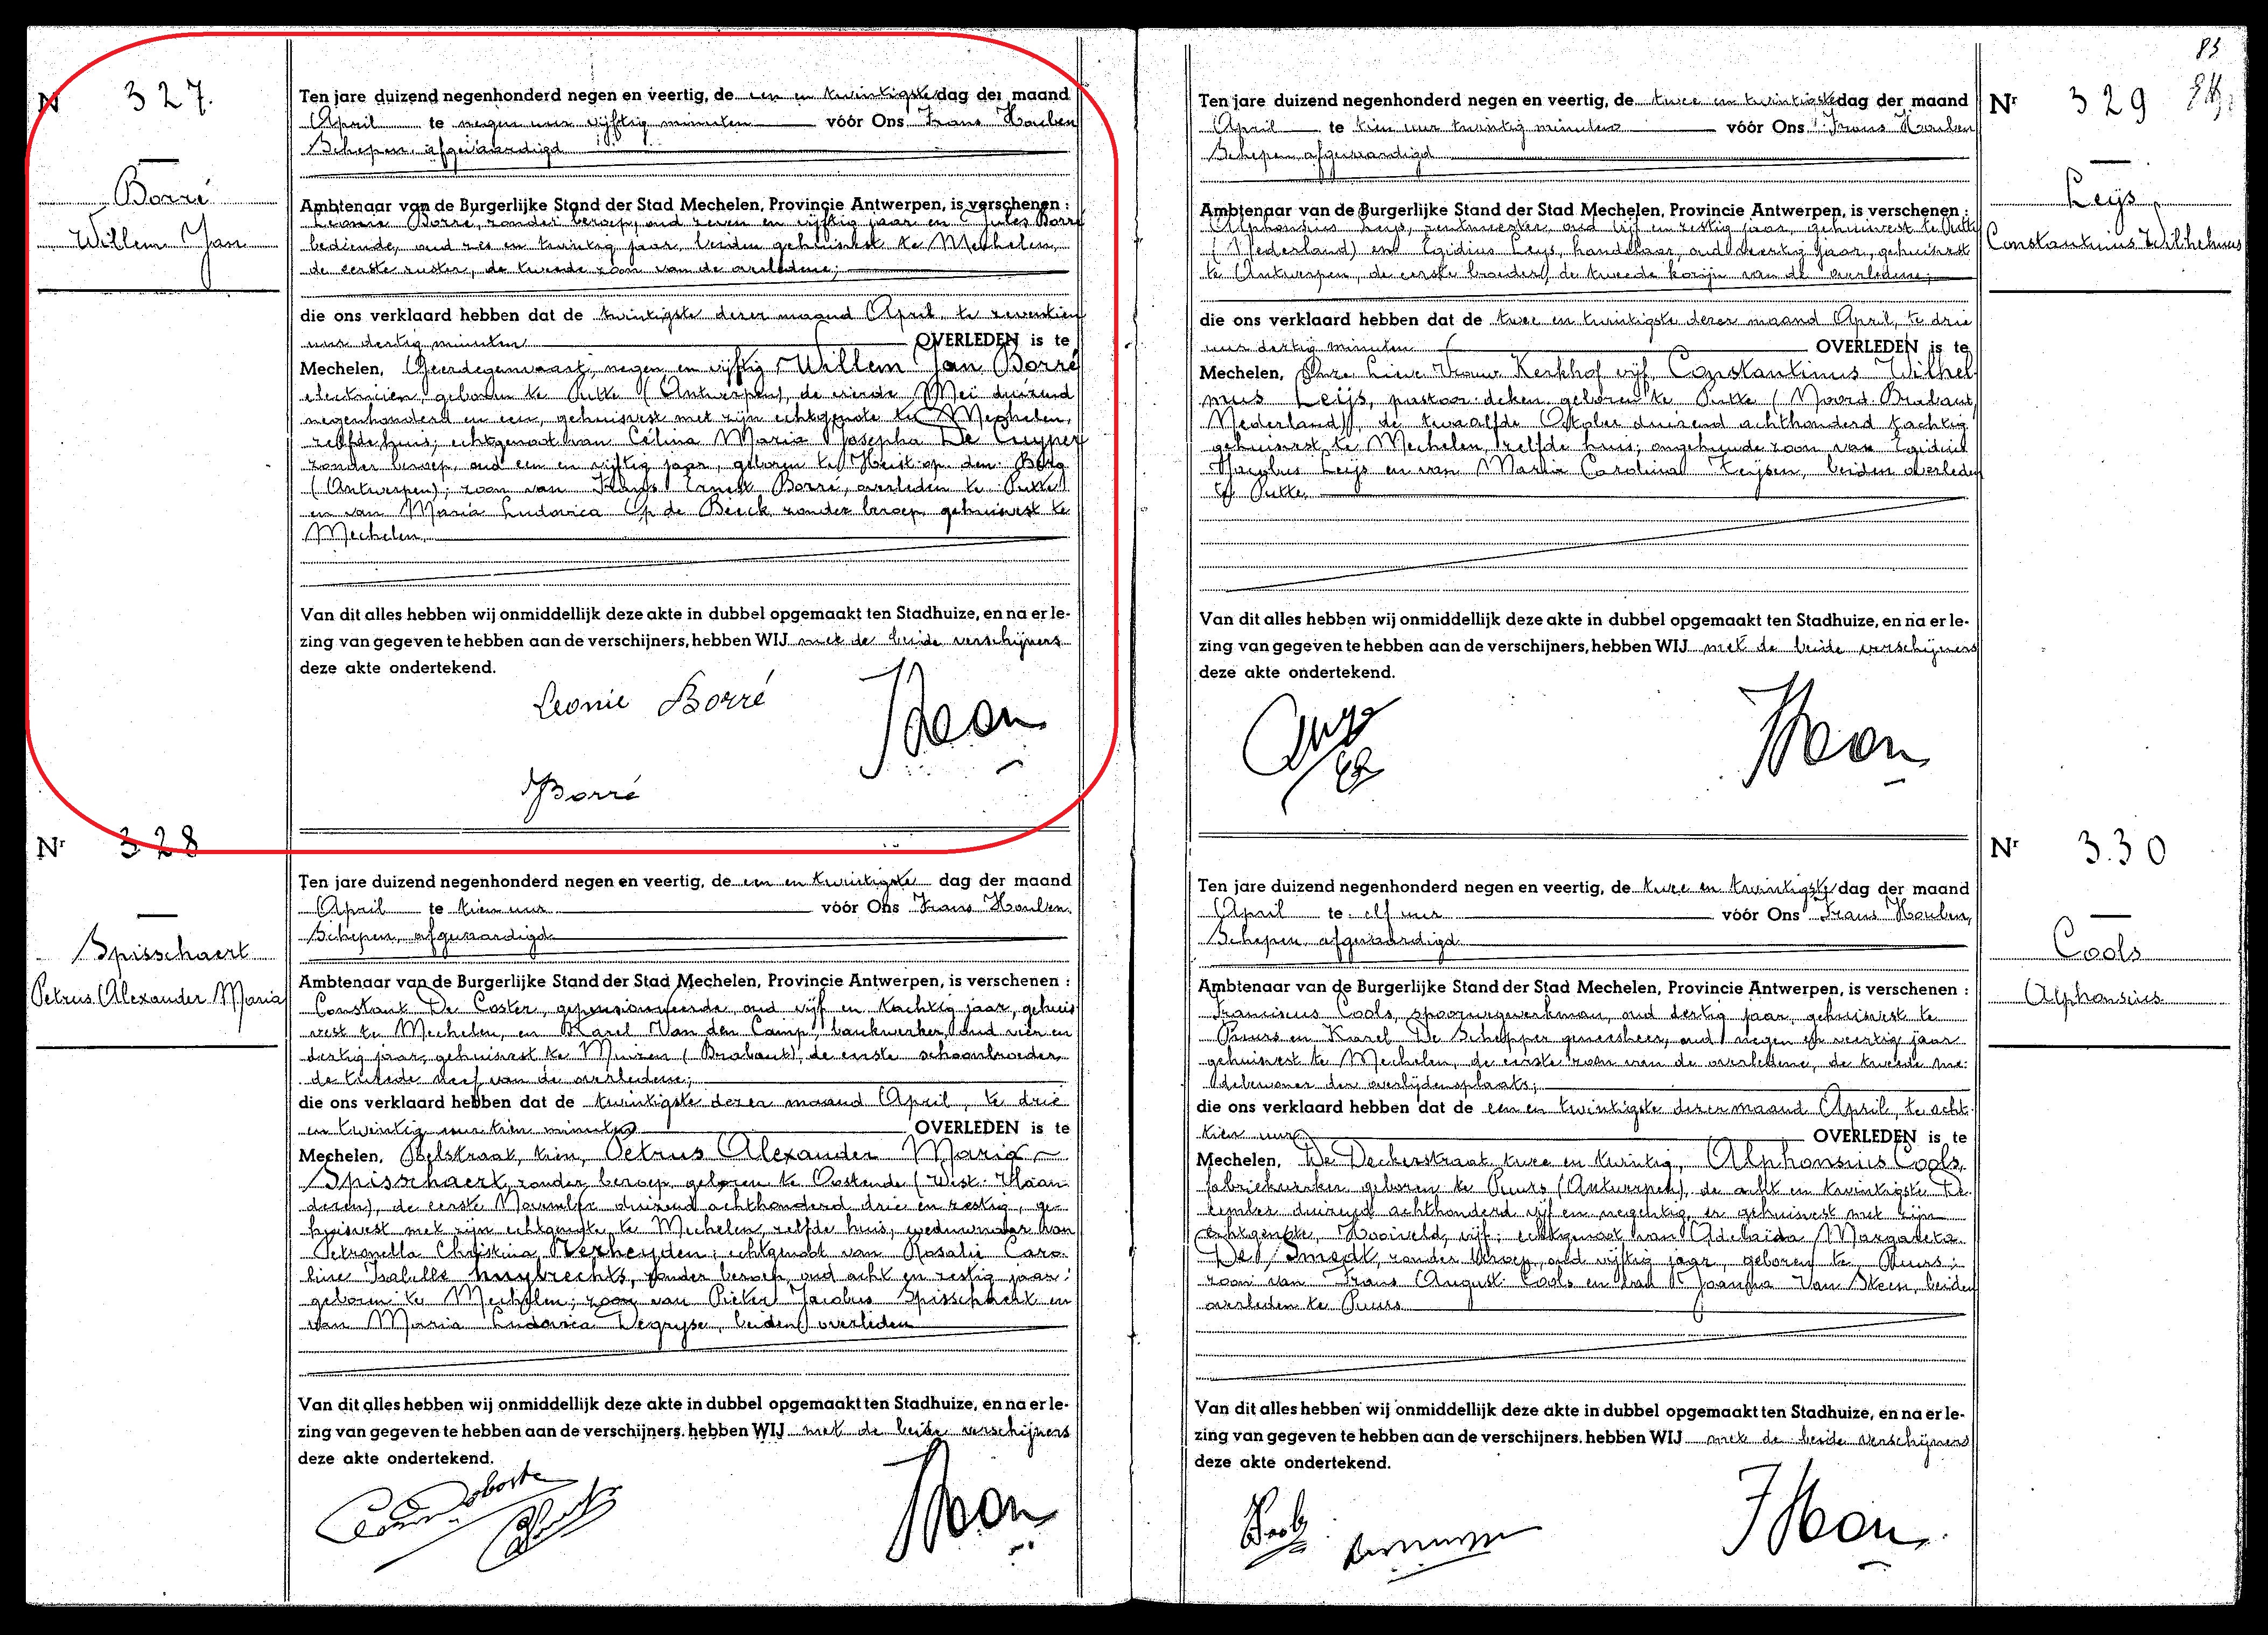 Nr 327.
Borré
Willem Jan
Ten jare duizend negenhonderd negen en veertig, de een en twintigste dag der maand
April te negen uur vijftig minuten vóór Ons Frans Houben
Schepen, afgevaardigd
Ambtenaar van de Burgerlijke Stand der Stad Mechelen, Provincie Antwerpen, is verschenen :
Leonie Borré, zonder beroep, oud zeven en vijftig jaar en Jules Borré
bediende, oud zes en twintig jaar, beiden gehuisvest te Mechelen,
de eerste zuster, de tweede zoon van de overledene;
die ons verklaard hebben dat de twintigste dezer maand April, te zeventien
uur dertig minuten OVERLEDEN is te
Mechelen, Geerdegemvaart, negen en vijftig, Willem Jan Borré
electricien, geboren te Putte (Antwerpen), de vierde Mei duizend
negenhonderd en een, gehuisvest met zijn echtgenote te Mechelen,
zelfde huis; echtgenoot van Célina Maria Josepha De Cuyper
zonder beroep, oud een en vijftig jaar, geboren te Heist-op-den-Berg
(Antwerpen); zoon van Frans Ernest Borré, overleden te Putte
en van Maria Ludovica Op de Beeck, zonder beroep, gehuisvest te
Mechelen.
Van dit alles hebben wij onmiddellijk deze akte in dubbel opgemaakt ten Stadhuize, en na er le-
zing van gegeven te hebben aan de verschijners, hebben WIJ met de beide verschijners
deze akte ondertekend.
Leonie Borré
Borré
Nr 328
Spisschaert
Petrus Alexander Maria
Ten jare duizend negenhonderd negen en veertig, de een en twintigste dag der maand
April te tien uur vóór Ons Frans Houben,
Schepen, afgevaardigd
Ambtenaar van de Burgerlijke Stand der Stad Mechelen, Provincie Antwerpen, is verschenen :
Constant De Coster, gepensionneerde, oud vijf en tachtig jaar, gehuis
vest te Mechelen, en Karel Van den Camp, bankwerker, oud vier en
dertig jaar, gehuisvest te Muizen (Brabant), de eerste schoonbroeder
de tweede neef van de overledene;
die ons verklaard hebben dat de twintigste dezer maand April, te drie
en twintig uur tien minuten OVERLEDEN is te
Mechelen, tien, Petrus Alexander Maria
Spisschaert, zonder beroep, geboren te Oostende (West-Vlaan
deren), de eerste November duizend achthonderd drie en zestig, ge-
huisvest met zijn echtgenote te Mechelen, zelfde huis, weduwnaar van
Petronella Christina Verheyden; echtgenoot van Rosalie Caro-
line Isabelle Huybrechts, zonder beroep, oud acht en zestig jaar,
geboren te Mechelen; zoon van Pieter Jacobus Spisschaert en
van Maria Ludovica Degryse, beiden overleden
Van dit alles hebben wij onmiddellijk deze akte in dubbel opgemaakt ten Stadhuize, en na er le-
zing van gegeven te hebben aan de verschijners. hebben WIJ met de beide verschijners
deze akte ondertekend.
83
84
Nr 329
Leijs,
Constantinus Wilhelmus
Ten jare duizend negenhonderd negen en veertig, de twee en twintigste dag der maand
April te tien uur twintig minuten vóór Ons Frans Houben
Schepen, afgevaardigd
Ambtenaar van de Burgerlijke Stand der Stad Mechelen, Provincie Antwerpen, is verschenen :
Alphonsius Leijs, rentmeester, oud vijf en zestig jaar, gehuisvest te Putte
(Nederland) en Egidius Leys, handelaar, oud veertig jaar, gehuisvest
te Antwerpen, de eerste broeder, de tweede kozijn van de overledene;
die ons verklaard hebben dat de twee en twintigste dezer maand April, te drie
uur dertig minuten OVERLEDEN is te
Mechelen, Onze Lieve Vrouw Kerkhof vijf, Constantinus Wilhel
mus Leijs, pastoor-deken, geboren te Putte (Noord-Brabant,
Nederland), de twaalfde Oktober duizend achthonderd tachtig
gehuisvest te Mechelen, zelfde huis; ongehuwde zoon van Egidius
Jacobus Leijs en van Maria Carolina Keijsen, beiden overleden
te Putte.
Van dit alles hebben wij onmiddellijk deze akte in dubbel opgemaakt ten Stadhuize, en na er le-
zing van gegeven te hebben aan de verschijners, hebben WIJ met de beide verschijners
deze akte ondertekend.
Nr 330
Cools
Alphonsius
Ten jare duizend negenhonderd negen en veertig, de twee en twintigste dag der maand
April te elf uur vóór Ons Frans Houben,
Schepen, afgevaardigd
Ambtenaar van de Burgerlijke Stand der Stad Mechelen, Provincie Antwerpen, is verschenen :
Franciscus Cools, spoorwegwerkman, oud dertig jaar, gehuisvest te
Puurs en Karel De Schepper geneesheer, oud negen en veertig jaar
gehuisvest te Mechelen, de eerste zoon van de overledene, de tweede me-
debewoner der overlijdensplaats;
die ons verklaard hebben dat de een en twintigste dezer maand April, te acht
tien uur OVERLEDEN is te
Mechelen, De Deckerstraat twee en twintig, Alphonsius Cools,
fabriekwerker geboren te Puurs (Antwerpen), de acht en twintigste De-
cember duizend achthonderd vijf en negentig, er gehuisvest met zijn
echtgenote, Hooiveld, vijf; echtgenoot van Adelaida Margareta
De Smedt, zonder beroep, oud vijftig jaar, geboren te Puurs;
zoon van Frans August Cools en van Joanna Van Steen, beiden
overleden te Puurs
Van dit alles hebben wij onmiddellijk deze akte in dubbel opgemaakt ten Stadhuize, en na er le-
zing van gegeven te hebben aan de verschijners. hebben WIJ met de beide verschijners
deze akte ondertekend.